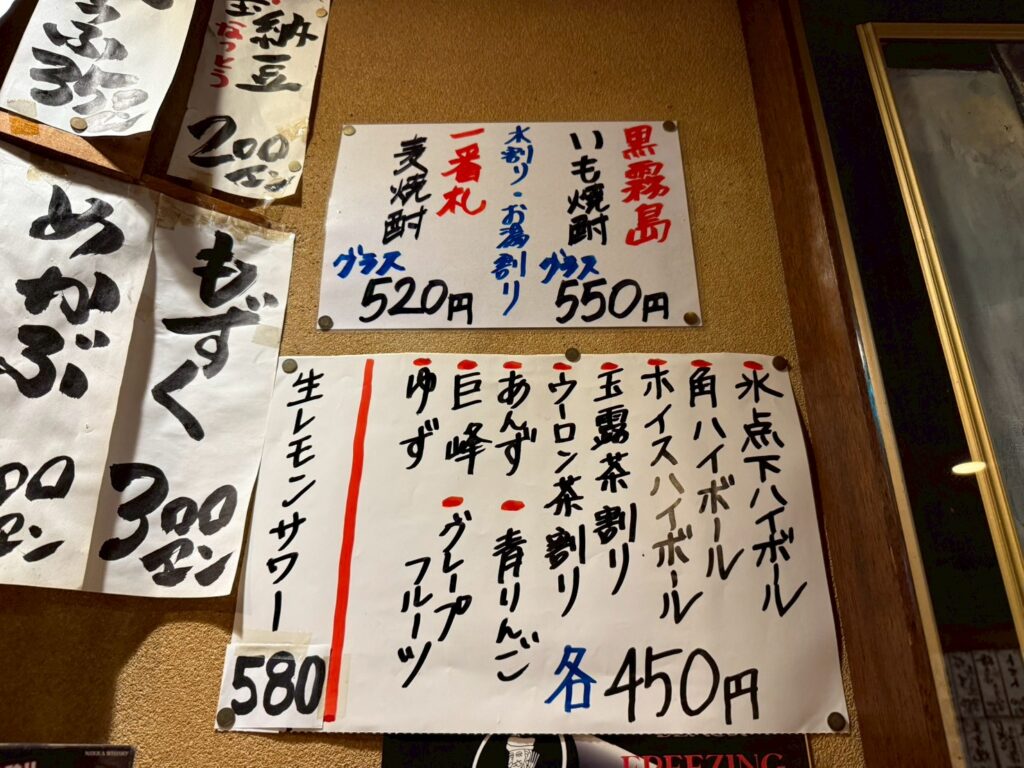 納豆
なっとう
200エン
めかぶ
もずく
300エン
黒霧島
いも焼酎
グラス
550円
水割り・お湯割り
一番札
麦焼酎
グラス
520円
氷点下ハイボール
角ハイボール
ホイスハイボール
玉露茶割り
ウーロン茶割り
あんず
青りんご
巨峰
グレープフルーツ
ゆず
各450円
生レモンサワー
580
NIKKA WHISKY
FREEZING